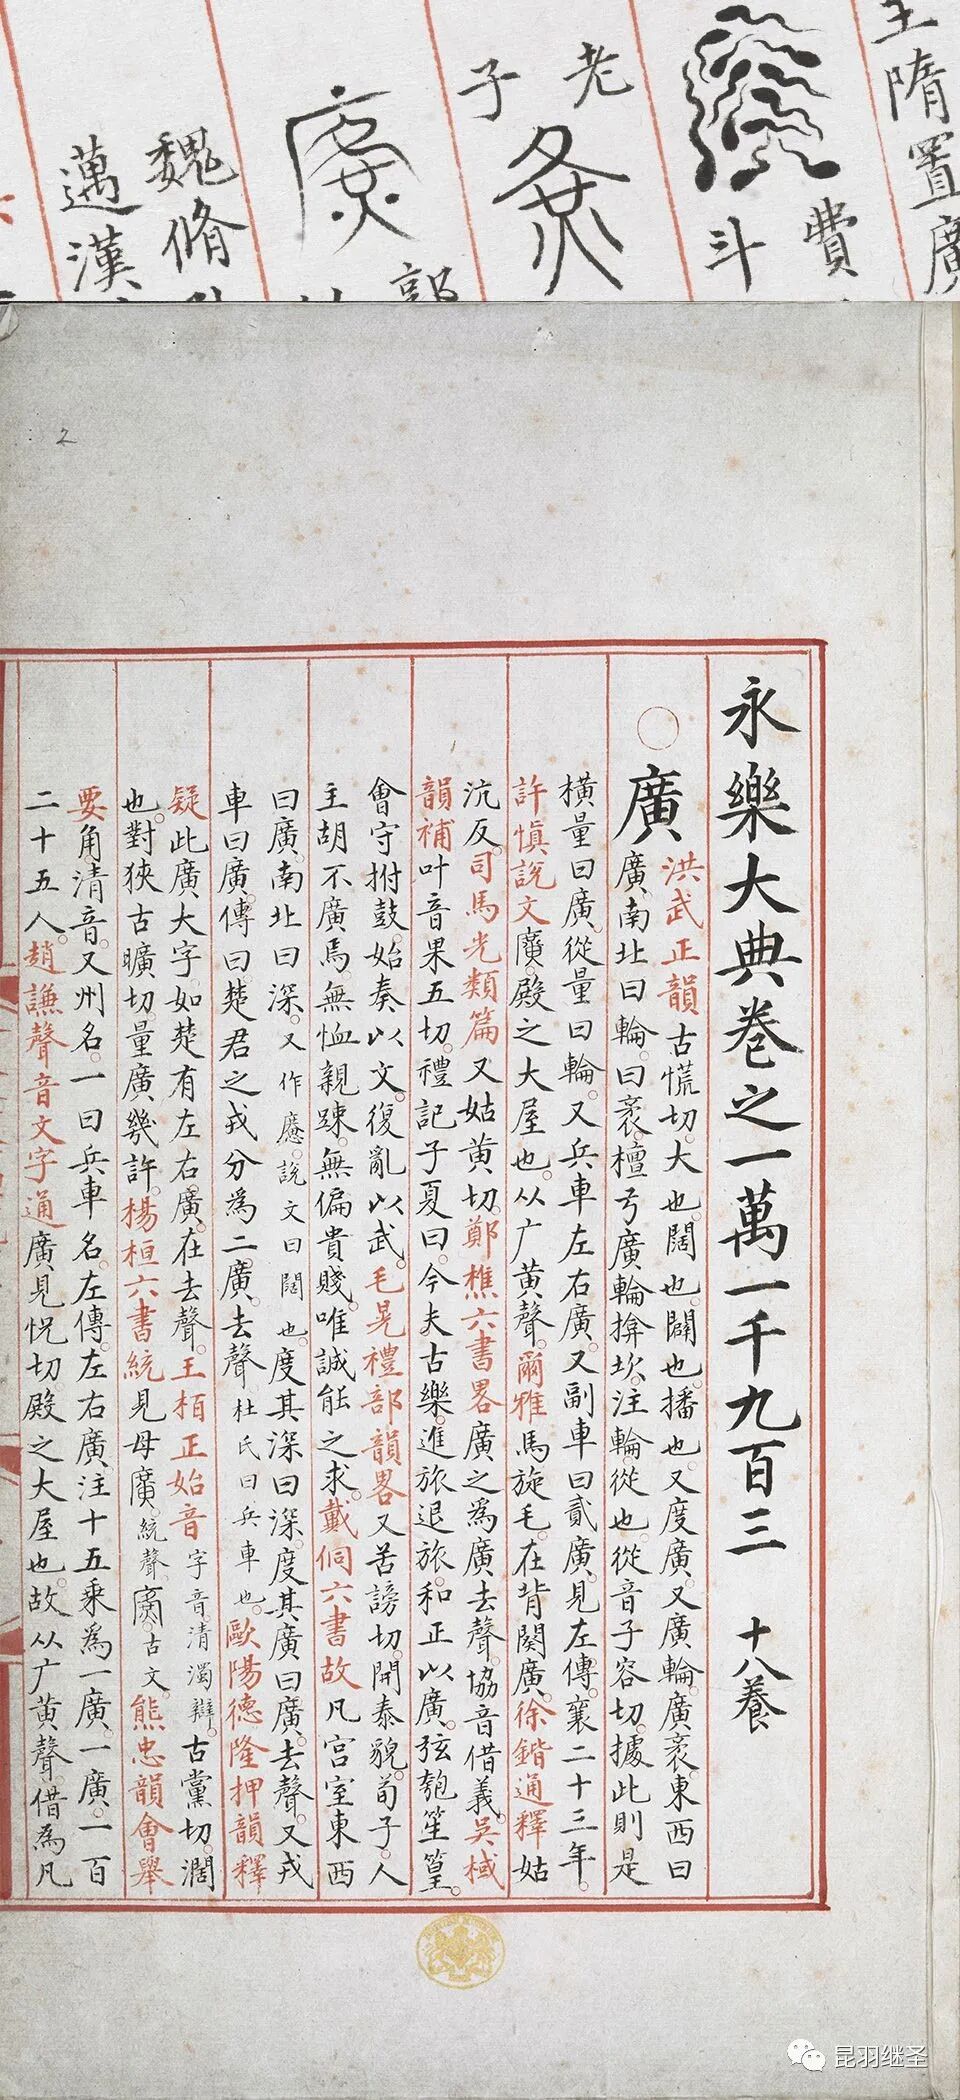 王隋置廣
費
斗
老
子
郭
魏脩
邁漢
2
永樂大典卷之一萬一千九百三 十八養
廣
洪武正韻古慌切大也闊也闢也播也又度廣又廣輪廣袤東西曰
廣南北曰輪曰袤檀弓廣輪揜坎注輪從也從音子容切據此則是
橫量曰廣從量曰輪又兵車左右廣又副車曰貳廣見左傳襄二十三年
許慎說文廣殿之大屋也从广黄聲爾雅馬旋毛在背闋廣徐鍇通釋姑
沆反司馬光類篇又姑黄切鄭樵六書畧廣之為廣去聲協音借義吳棫
韻補叶音果五切禮記子夏曰今夫古樂進旅退旅和正以廣弦匏笙篁
會守拊鼓始奏以文復亂以武毛晃禮部韻畧又苦謗切開泰貌荀子人
主胡不廣焉無恤親踈無偏貴賤唯誠能之求戴侗六書故凡宮室東西
曰廣南北曰深又作應說文曰闊也度其深曰深度其廣曰廣去聲又戎
車曰廣傳曰楚君之戎分為二廣去聲杜氏曰兵車也歐陽德隆押韻釋
疑此廣大字如楚有左右廣在去聲王柏正始音字音清濁辯古黨切濶
也對狹古曠切量廣幾許楊桓六書統見母廣統聲廣古文熊忠韻會舉
要角清音又州名一曰兵車名左傳左右廣注十五乘為一廣一廣一百
二十五人趙謙聲音文字通廣見怳切殿之大屋也故从广黄聲借為凡
昆羽继圣